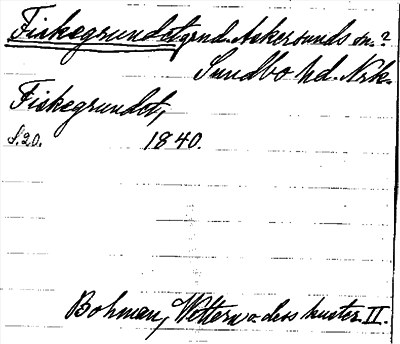 Fiskegrundet, grnd. Askersunds sn.?
Sundbo hd. Nrk.
Fiskegrundet,
S.20. 1840.
Bohman, Wettern o. dess kuster II.